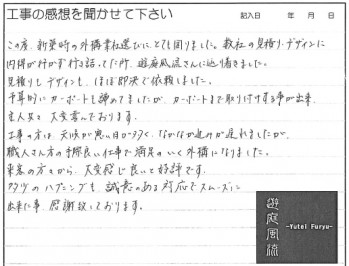 工事の感想を聞かせて下さい
記入日 年 月 日
この度、新築時の外構業社選びにとても困りました。数社の見積り・デザインに
納得が行かず行き詰ってた所、遊庭風流さんに辿り着きました。
見積りもデザインも、ほぼ即決で依頼しました。
予算的にカーポートも諦めてましたが、カーポートまで取り付けする事が出来、
主人共々大変喜んでおります。
工事の方は、天候が悪い日が多く、なかなか進みが遅れましたが、
職人さん方の手際良い仕事で満足のいく外構になりました。
来客の方々から、大変感じ良いと好評です。
多少のハプニングも、誠意のある対応でスムーズに
出来た事、感謝致しております。
遊庭風流
-Yutei Furyu-